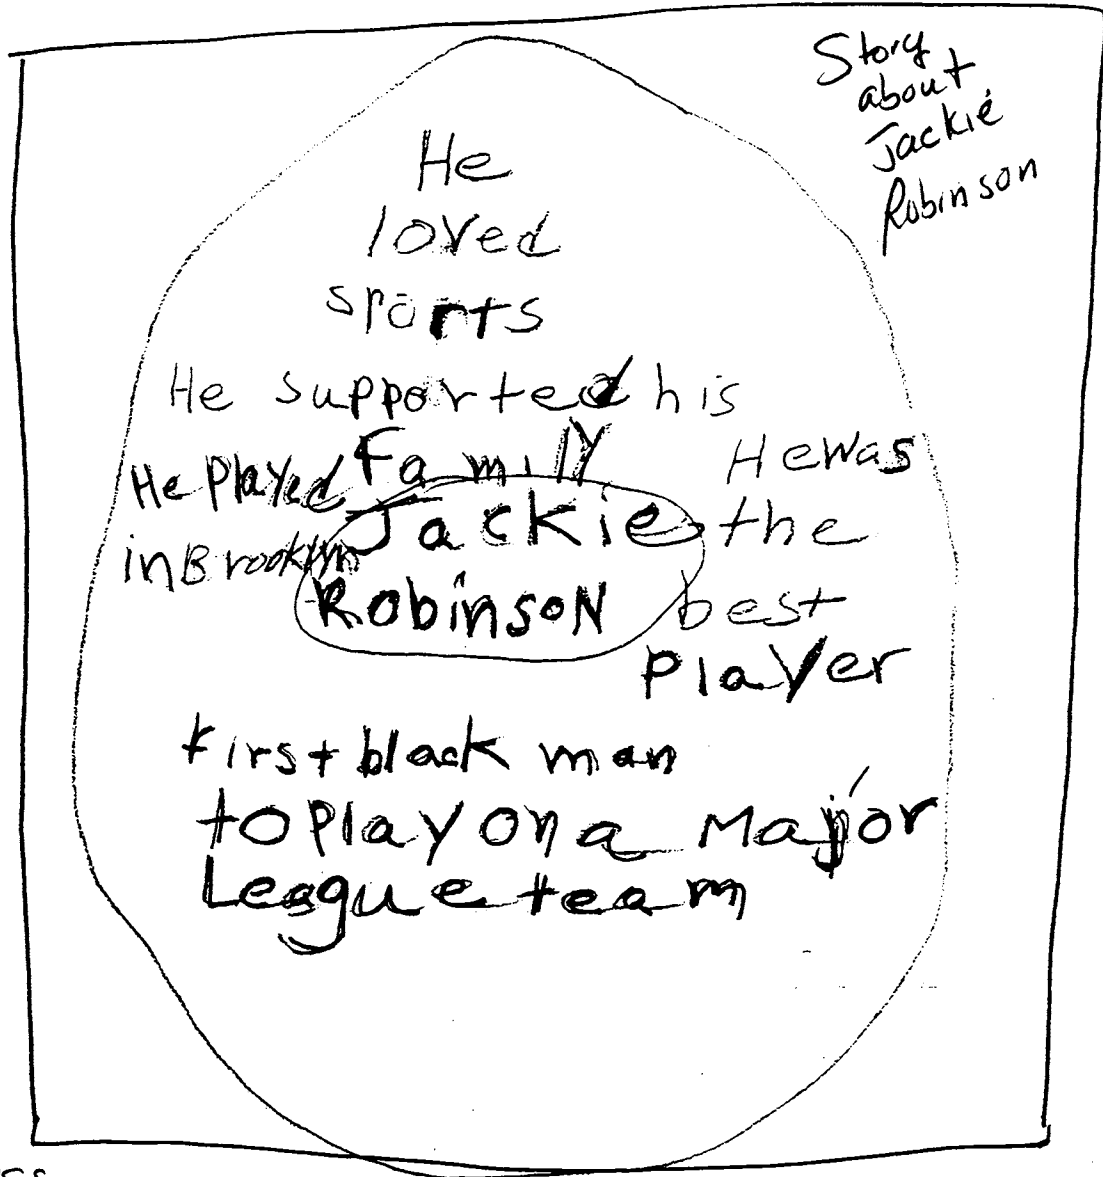 Story
about
Jackie
Robinson
He
loved
sports
He supported his
Family
He Played
in Brooklyn
Jackie
Robinson
He was
the
best
Player
first black man
to play on a Major
League team